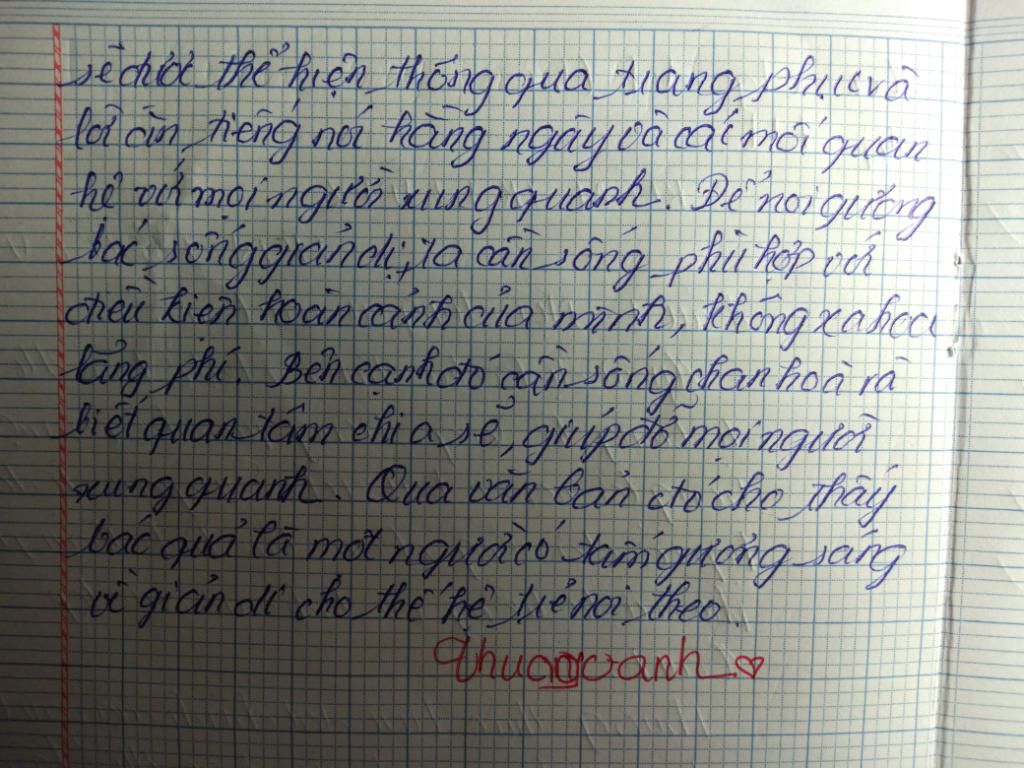 sẽ được thể hiện thông qua trang phục và
lời ăn tiếng nói hàng ngày và các mối quan
hệ với mọi người xung quanh. Để noi gương
bác sống giản dị, ta cần sống phù hợp với
điều kiện hoàn cảnh của mình, không xa hoa
lãng phí. Bên cạnh đó cần sống chan hoà và
biết quan tâm chia sẻ, giúp đỡ mọi người
xung quanh. Qua văn bản đó cho thấy
bác quả là một người có tấm gương sáng
về giản dị cho thế hệ trẻ noi theo.